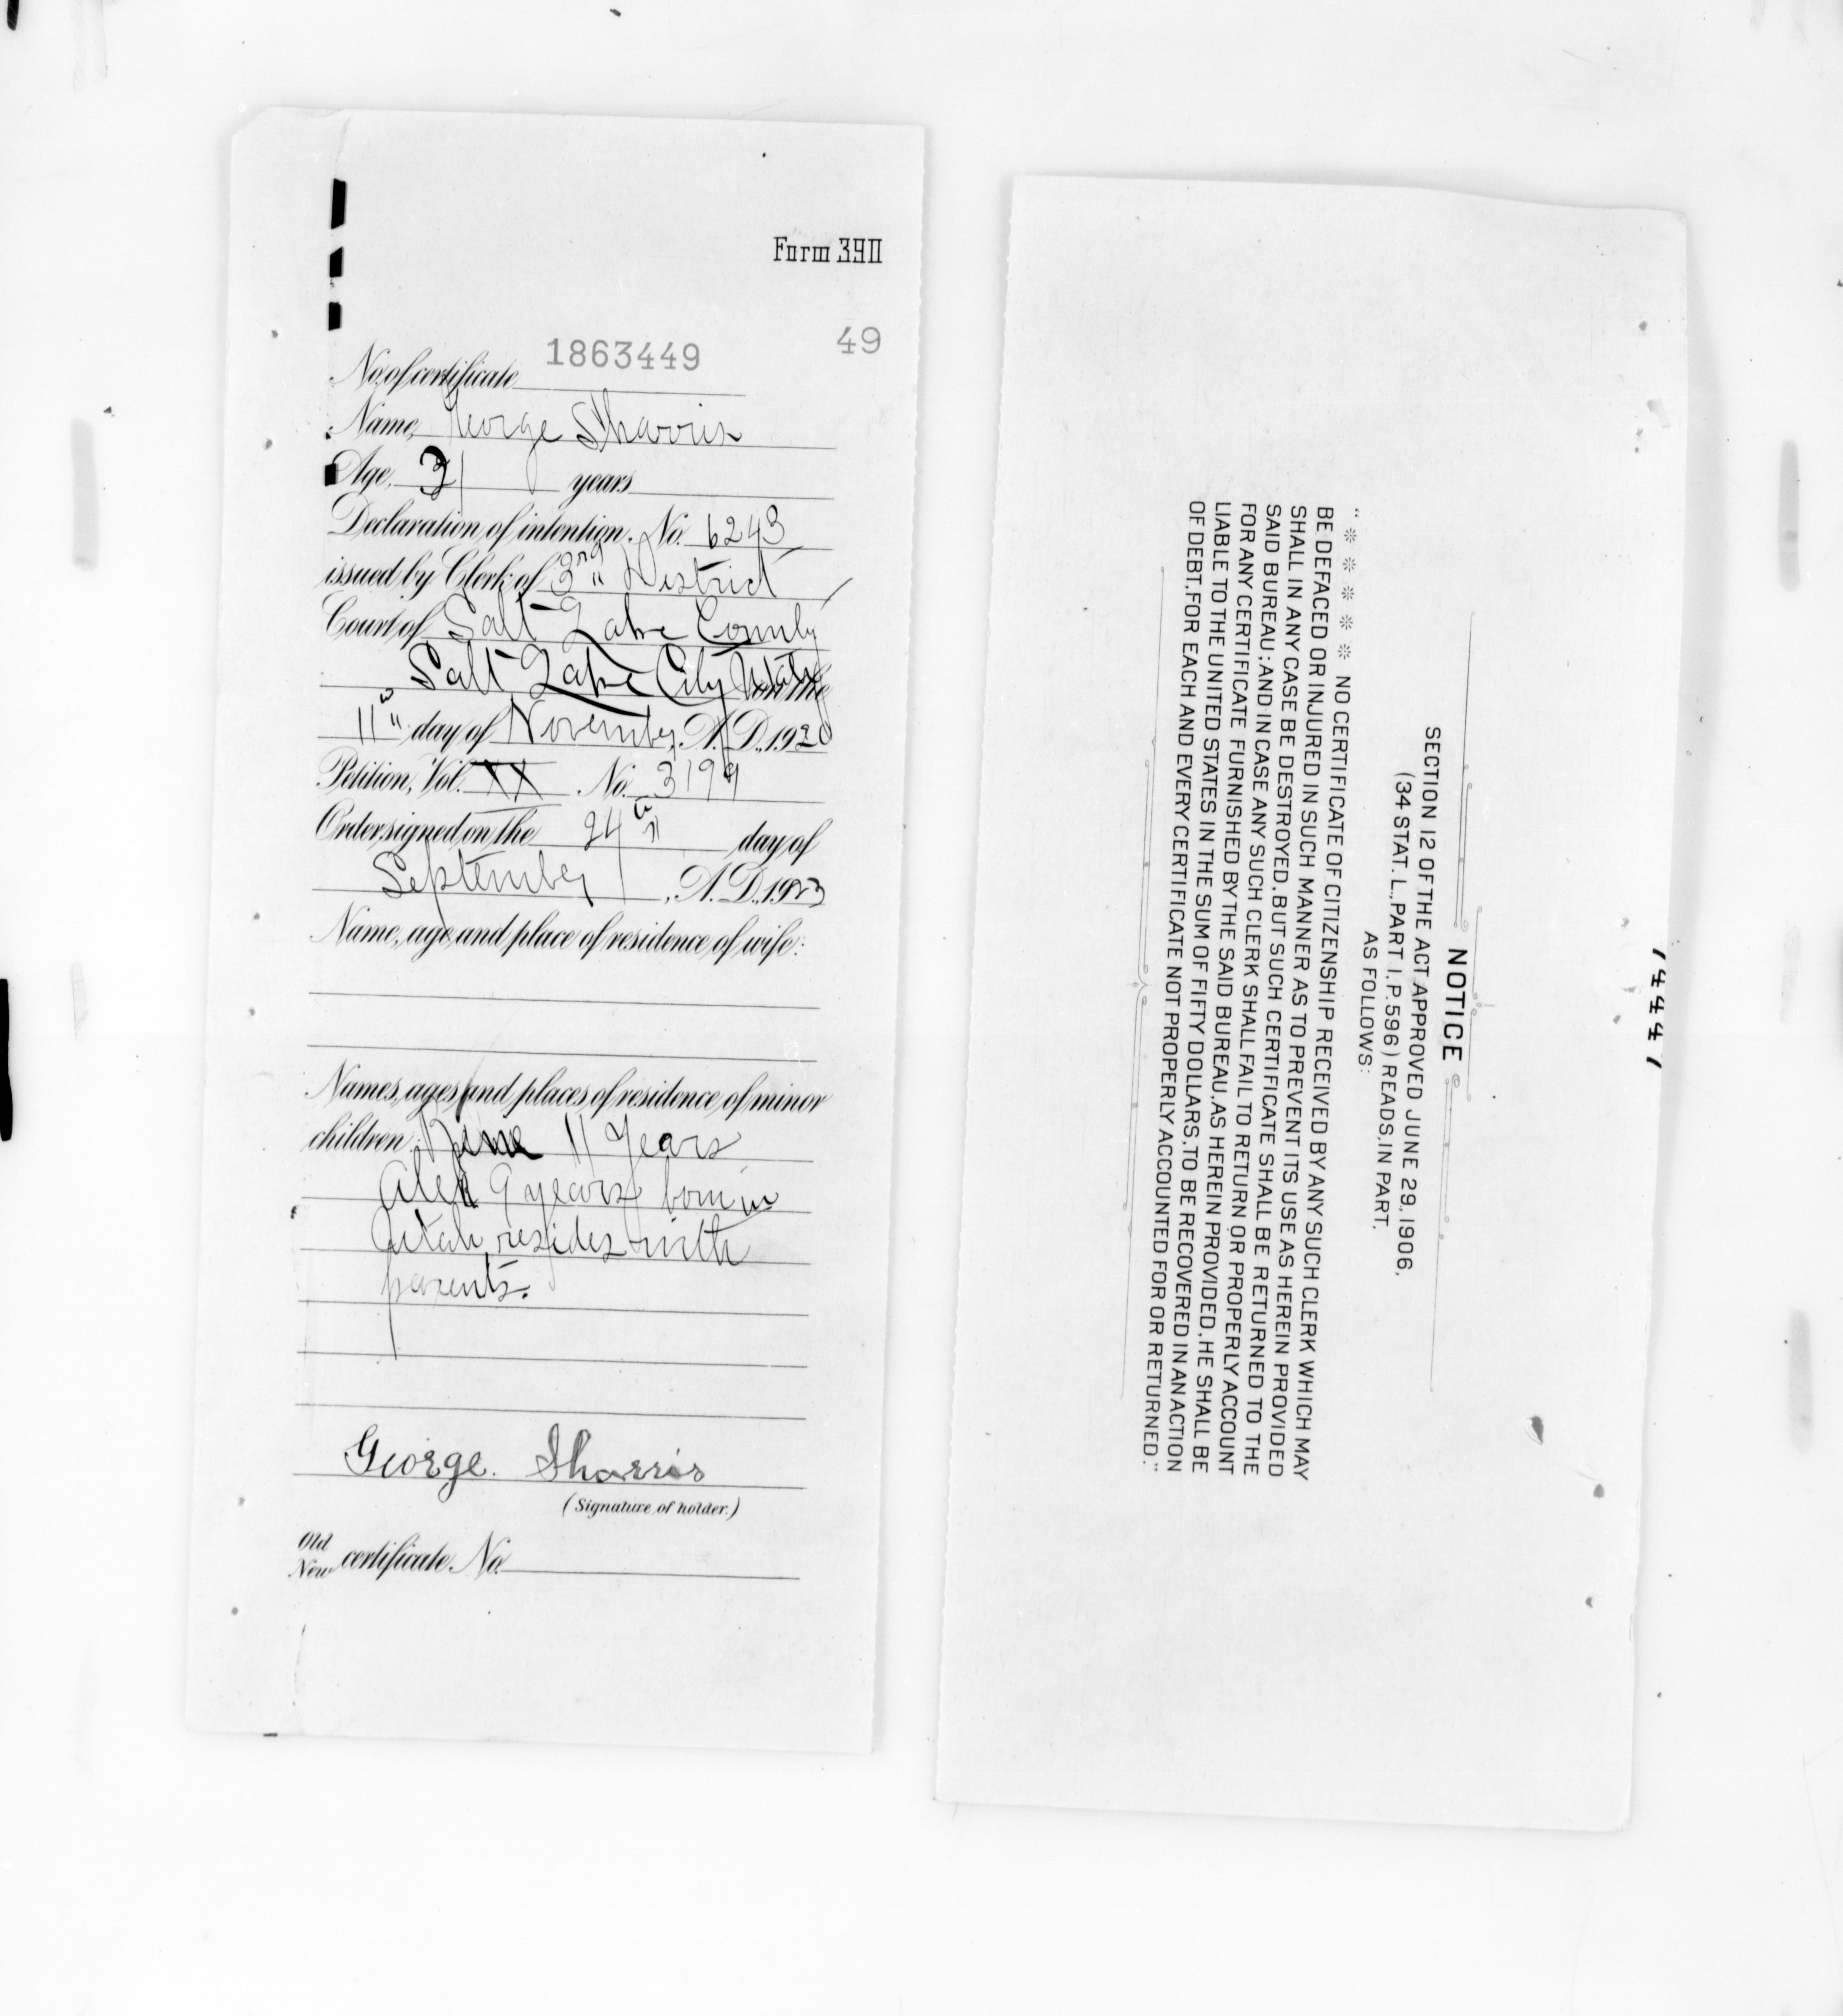 Form 390
49
No. of certificate 1863449
Name, George Sharris
Age, 31 years
Declaration of intention, No. 6243
issued by Clerk of 3rd District
Court of Salt Lake County
Salt Lake City Utah on the
11th day of November, A. D., 1920
Petition, Vol. XX No. 3199
Order signed on the 24th day of
September, A. D., 1923
Name, age and place of residence of wife:
Names, ages and places of residence of minor
children: 11 Years
Alex 9 years born in
Utah, resides with
parents.
George. Sharris
(Signature of holder.)
Old
New certificate No.
NOTICE
SECTION 12 OF THE ACT APPROVED JUNE 29, 1906,
(34 STAT. L., PART 1, P. 596) READS, IN PART,
AS FOLLOWS:
"※ ※ ※ ※ ※ NO CERTIFICATE OF CITIZENSHIP RECEIVED BY ANY SUCH CLERK WHICH MAY
BE DEFACED OR INJURED IN SUCH MANNER AS TO PREVENT ITS USE AS HEREIN PROVIDED
SHALL IN ANY CASE BE DESTROYED, BUT SUCH CERTIFICATE SHALL BE RETURNED TO THE
SAID BUREAU; AND IN CASE ANY SUCH CLERK SHALL FAIL TO RETURN OR PROPERLY ACCOUNT
FOR ANY CERTIFICATE FURNISHED BY THE SAID BUREAU, AS HEREIN PROVIDED, HE SHALL BE
LIABLE TO THE UNITED STATES IN THE SUM OF FIFTY DOLLARS, TO BE RECOVERED IN AN ACTION
OF DEBT, FOR EACH AND EVERY CERTIFICATE NOT PROPERLY ACCOUNTED FOR OR RETURNED."